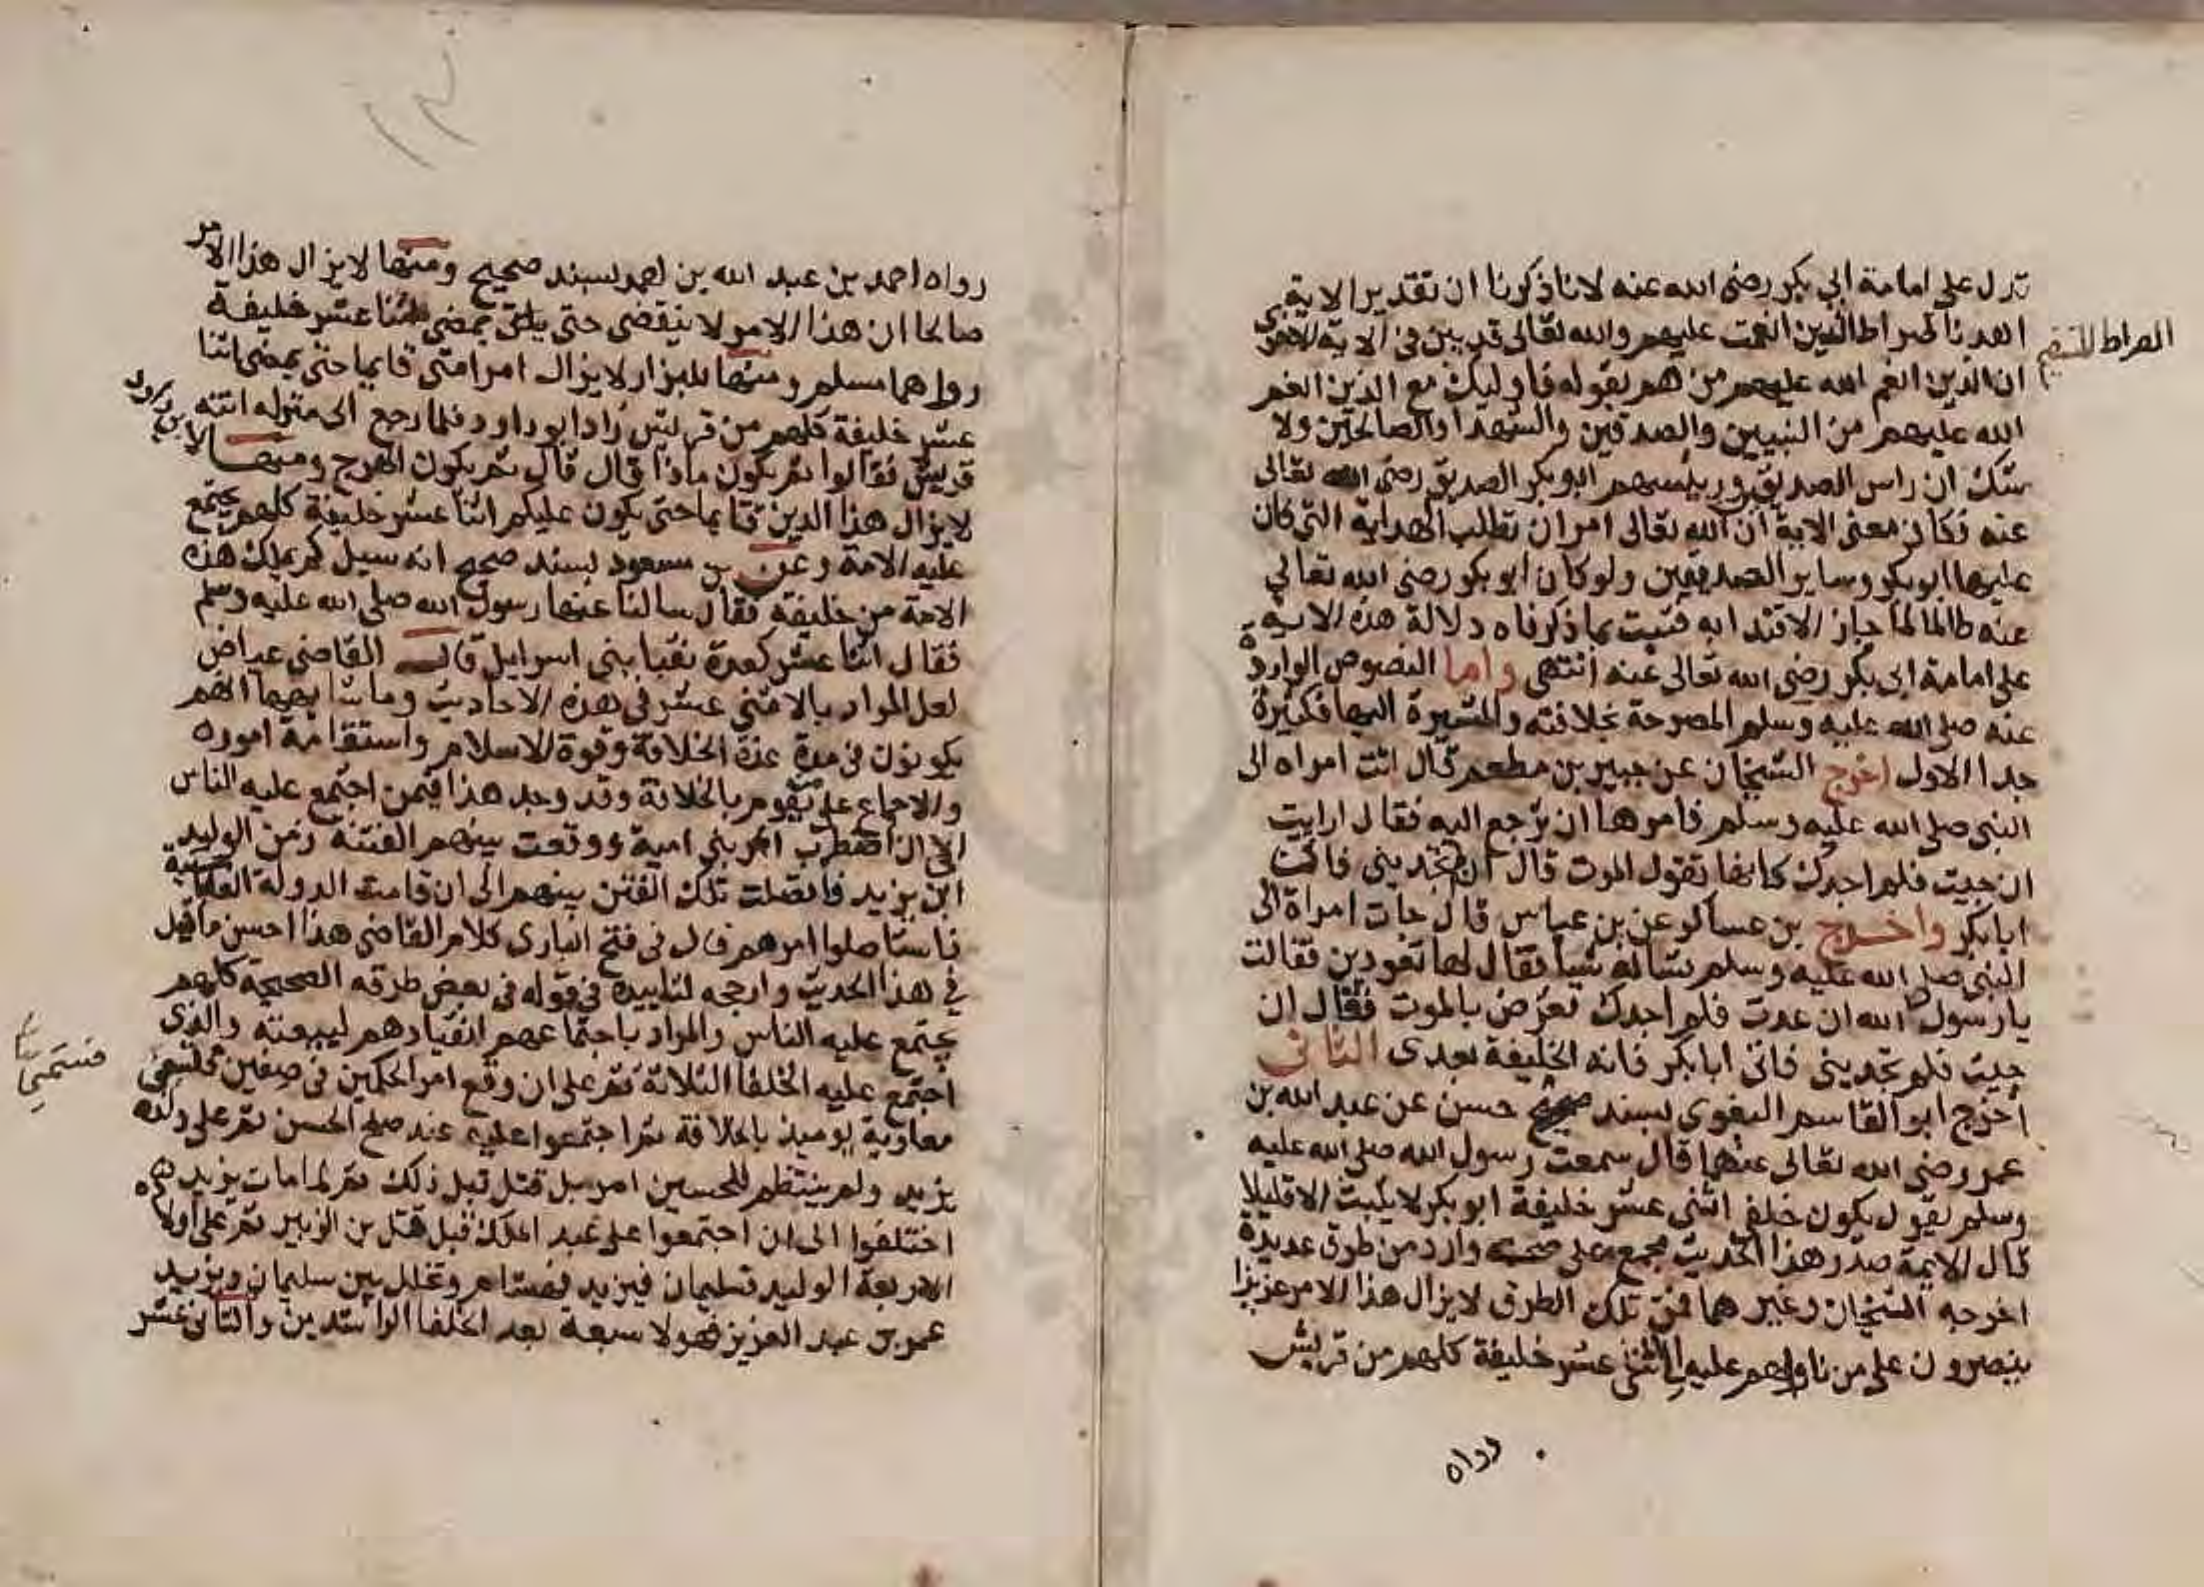 تدل على امامة ابي بكر رضي الله عنه لانا ذكرنا ان تقدير الاية
اهدنا صراط الذين انعمت عليهم والله تعالى قد بين في الاية الاخرى
الصراط المستقيم
ان الذين انعم الله عليهم من هم بقوله فاوليك مع الذين انعم
الله عليهم من النبيين والصديقين والشهدا والصالحين ولا
شك ان راس الصديقين ورييسهم ابو بكر الصديق رضي الله تعالى
عنه فكان معنى الاية ان الله تعالى امر ان نطلب الهداية التي كان
عليها ابو بكر وساير الصديقين ولو كان ابو بكر رضي الله تعالى
عنه ظالما لما جاز الاقتدا به فثبت بما ذكرناه دلالة هذه الاية
على امامة ابى بكر رضي الله تعالى عنه انتهى واما النصوص الواردة
عنه صلى الله عليه وسلم المصرحة بخلافته والمشيرة اليها فكثيرة
جدا الاول اخرج الشيخان عن جبير بن مطعم قال اتت امراه الى
النبي صلى الله عليه وسلم فامرها ان ترجع اليه فقالت ارايت
ان جيت فلم اجدك كانها تقول الموت قال ان لم تجديني فات
ابا بكر واخرج بن عساكر عن بن عباس قال جات امراة الى
النبي صلى الله عليه وسلم تساله شيا فقال لها تعودين فقالت
يا رسول الله ان عدت فلم اجدك تعرض بالموت فقال ان
جيت فلم تجديني فاتي ابا بكر فانه الخليفة بعدى الثاني
اخرج ابو القاسم البغوى بسند حسن عن عبد الله بن
عمر رضي الله تعالى عنهما قال سمعت رسول الله صلى الله عليه
وسلم يقول يكون خلفي اثنى عشر خليفة ابو بكر لا يلبث الا قليلا
قال الايمة صدر هذا الحديث مجمع على صحته وارد من طرق عديدة
اخرجه الشيخان وغيرهما فمن تلك الطرق لا يزال هذا الامر عزيزا
ينصرون على من ناواهم عليه الى اثنى عشر خليفة كلهم من قريش
رواه
رواه احمد بن عبد الله بن احمد بسند صحيح ومنها لا يزال هذا الامر
صالحا ان هذا الامر لا ينقضي حتى يمضي اثنا عشر خليفة
رواهما مسلم ومنها للبزار لا يزال امر امتى قايما حتى يمضي اثنا
عشر خليفة كلهم من قريش زاد ابو داود فلما رجع الى منزله اتته
قريش فقالوا ثم يكون ماذا قال قال ثم يكون الهرج ومنها لابى داود
لا يزال هذا الدين قايما حتى يكون عليكم اثنا عشر خليفة كلهم يجتمع
عليه الامة وعن بن مسعود بسند صحيح انه سيل كم يملك هذه
الامة من خليفة فقال سالنا عنها رسول الله صلى الله عليه وسلم
فقال اثنا عشر كعدة نقبا بني اسرايل قال القاضي عياض
لعل المراد بالاثني عشر في هذه الاحاديث وما شابهها انهم
يكونون في مدة عزة الخلافة وقوة الاسلام واستقامة اموره
والاجماع على من يقوم بالخلافة وقد وجد هذا فيمن اجتمع عليه الناس
الى ان اضطرب امر بني امية ووقعت بينهم الفتنة زمن الوليد
ابن يزيد فاتصلت تلك الفتن بينهم الى ان قامت الدولة العباسية
فاستاصلوا امرهم قال في فتح البارى كلام القاضي هذا احسن ما قيل
في هذا الحديث وارجحه لتاييده في قوله في بعض طرقه الصحيحة كلهم
يجتمع عليه الناس والمراد باجتماعهم انقيادهم لبيعته والذى
اجتمع عليه الخلفا الثلاثة ثم على ان وقع امر الحكمين في صفين فتسمى
معاوية يوميذ بالخلافة ثم اجتمعوا عليه عند صلح الحسن ثم على ولده
يزيد ولم ينتظم للحسين امر بل قتل قبل ذلك ثم لما مات يزيد
اختلفوا الى ان اجتمعوا على عبد الملك قبل قتل بن الزبير ثم على اولاده
الاربعة الوليد فسليمان فيزيد فهشام وتخلل بين سليمان ويزيد
عمر بن عبد العزيز فهولا سبعة بعد الخلفا الراشدين والثاني عشر